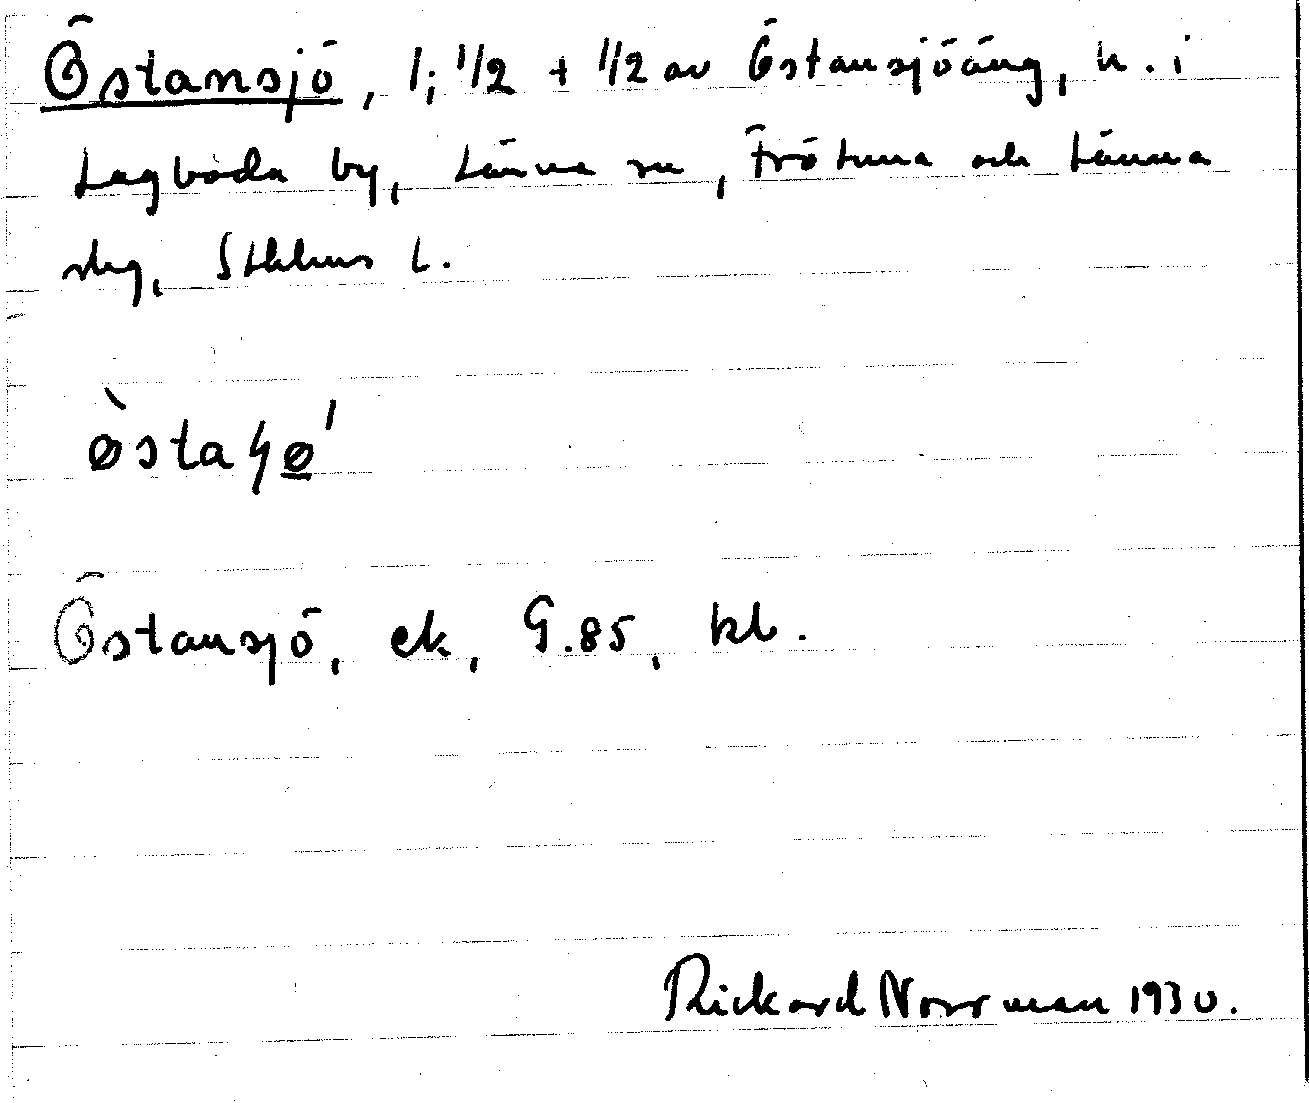 Östansjö, 1; 1/2 + 1/2 av Östansjöäng, h. i
Lagboda by, Länna sn, Frötuna och Länna
slg, Sthlms l.
òstaɧø̲ˈ
Östansjö, ek, G.85, kb.
Rickard Norrman 1930.